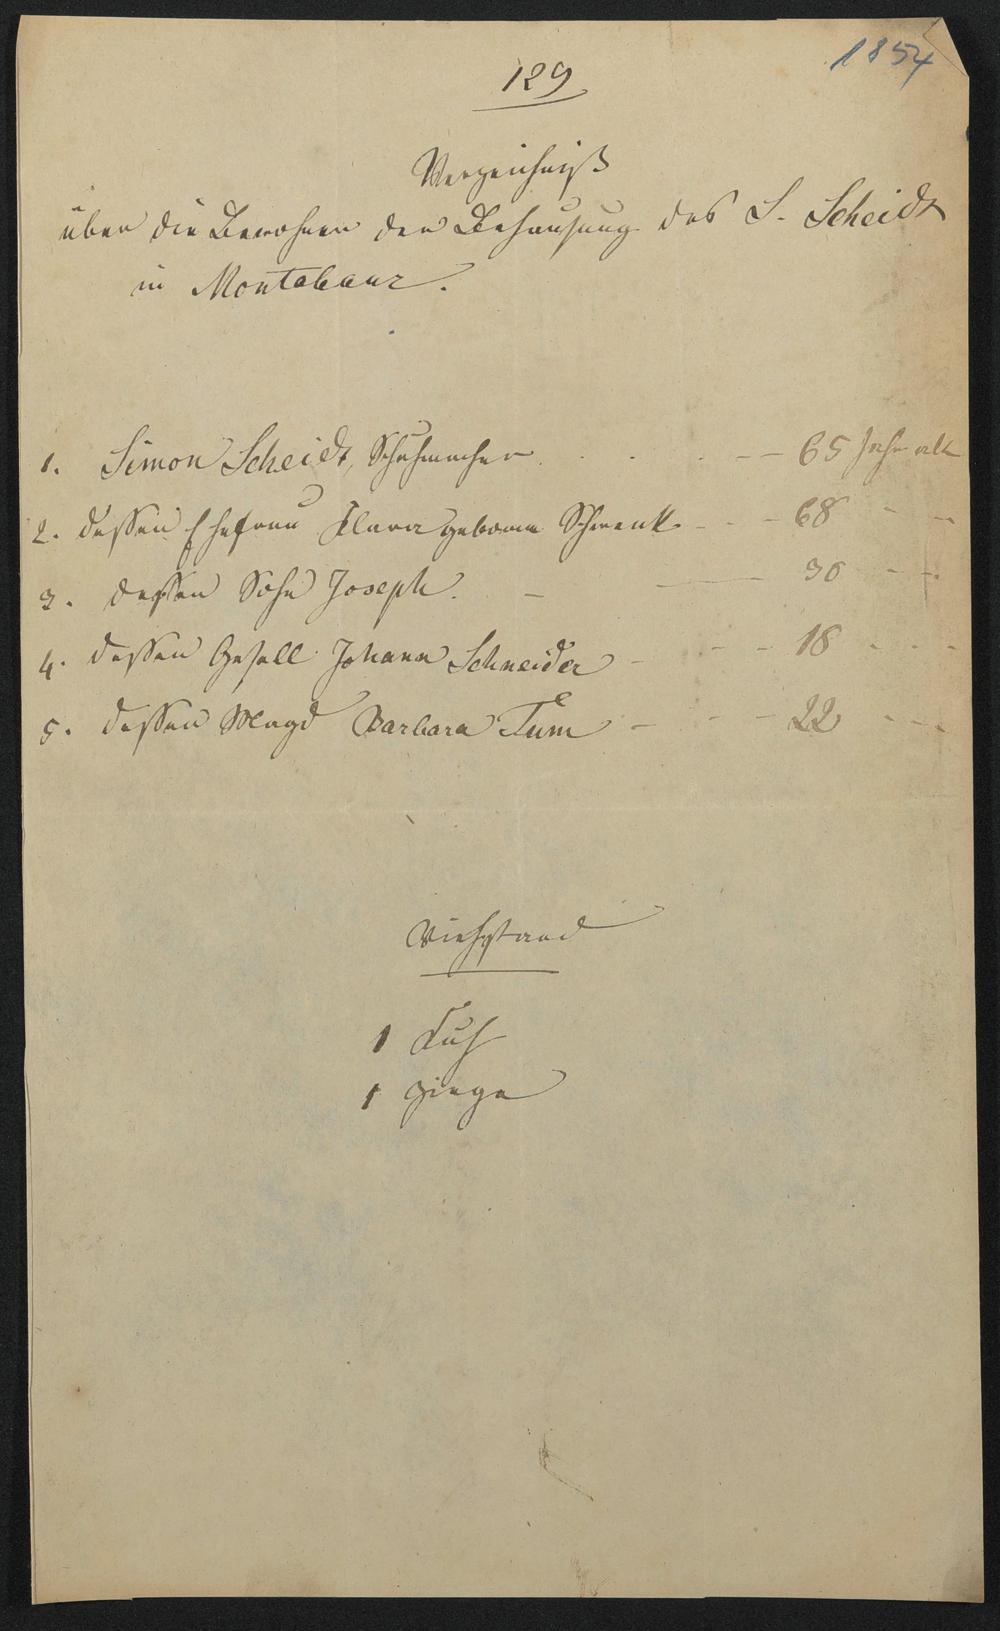 1854
129
Verzeichniß
über die Bewohner der Behausung des S. Scheidt
in Montabaur.
1. Simon Scheidt, Schuhmacher . . . - - 65 Jahr alt
2. dessen Ehefrau Klara geborne Schwenk - - - 68 - -
3. dessen Sohn Joseph. - - 36 - -
4. dessen Gesell Johann Schneider - - - 18 - - -
5. dessen Magd Barbara Tum - - - 22 - - -
Viehstand
1 Kuh
1 Ziege